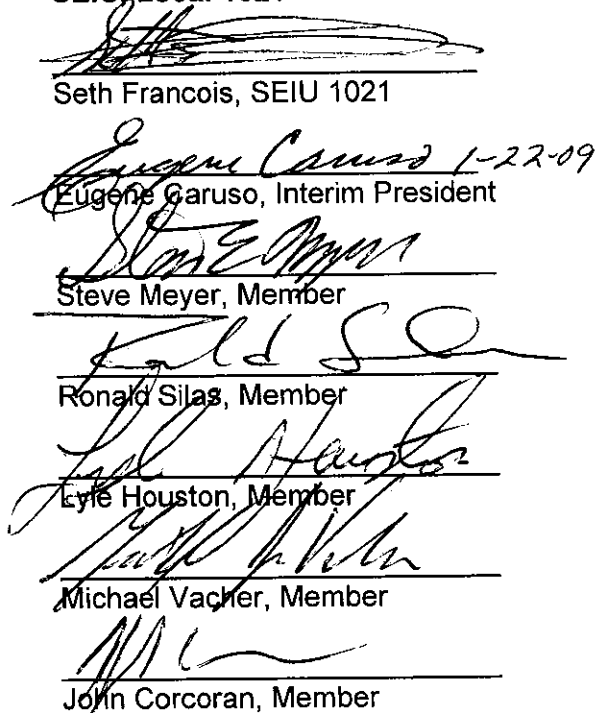 Seth Francois, SEIU 1021
Eugene Caruso 1-22-09
Eugene Caruso, Interim President
Steve Meyer, Member
Ronald Silas, Member
Lyle Houston
Lyle Houston, Member
Michael Vacher, Member
John Corcoran, Member